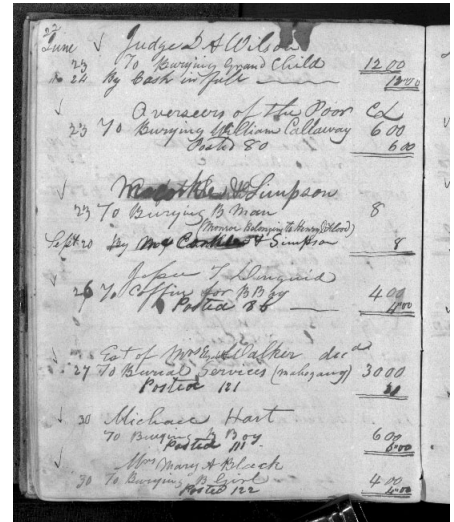 22
June Judge D A Wilson
23 To Burying Grand Child 12 00
24 By Cash in full 12 00
Overseers of the Poor
23 To Burying William Callaway 6 00
Posted 80 6 00
McCorkle & Simpson
23 To Burying B Man 8
(Monroe Belonging to Henry Flood)
Sept 20 By McCorkle & Simpson 8
T Diuguid
26 To Coffin for B Boy 4 00
Posted 86 4 00
Est of Mrs Walker decd
27 To Burial Services (Mahogany) 30 00
Posted 121 30
30 Michael Hart
To Burying B Boy 6 00
Posted 111 6 00
Mrs Mary A Black
30 To Burying B Girl 4 00
Posted 122 4 00